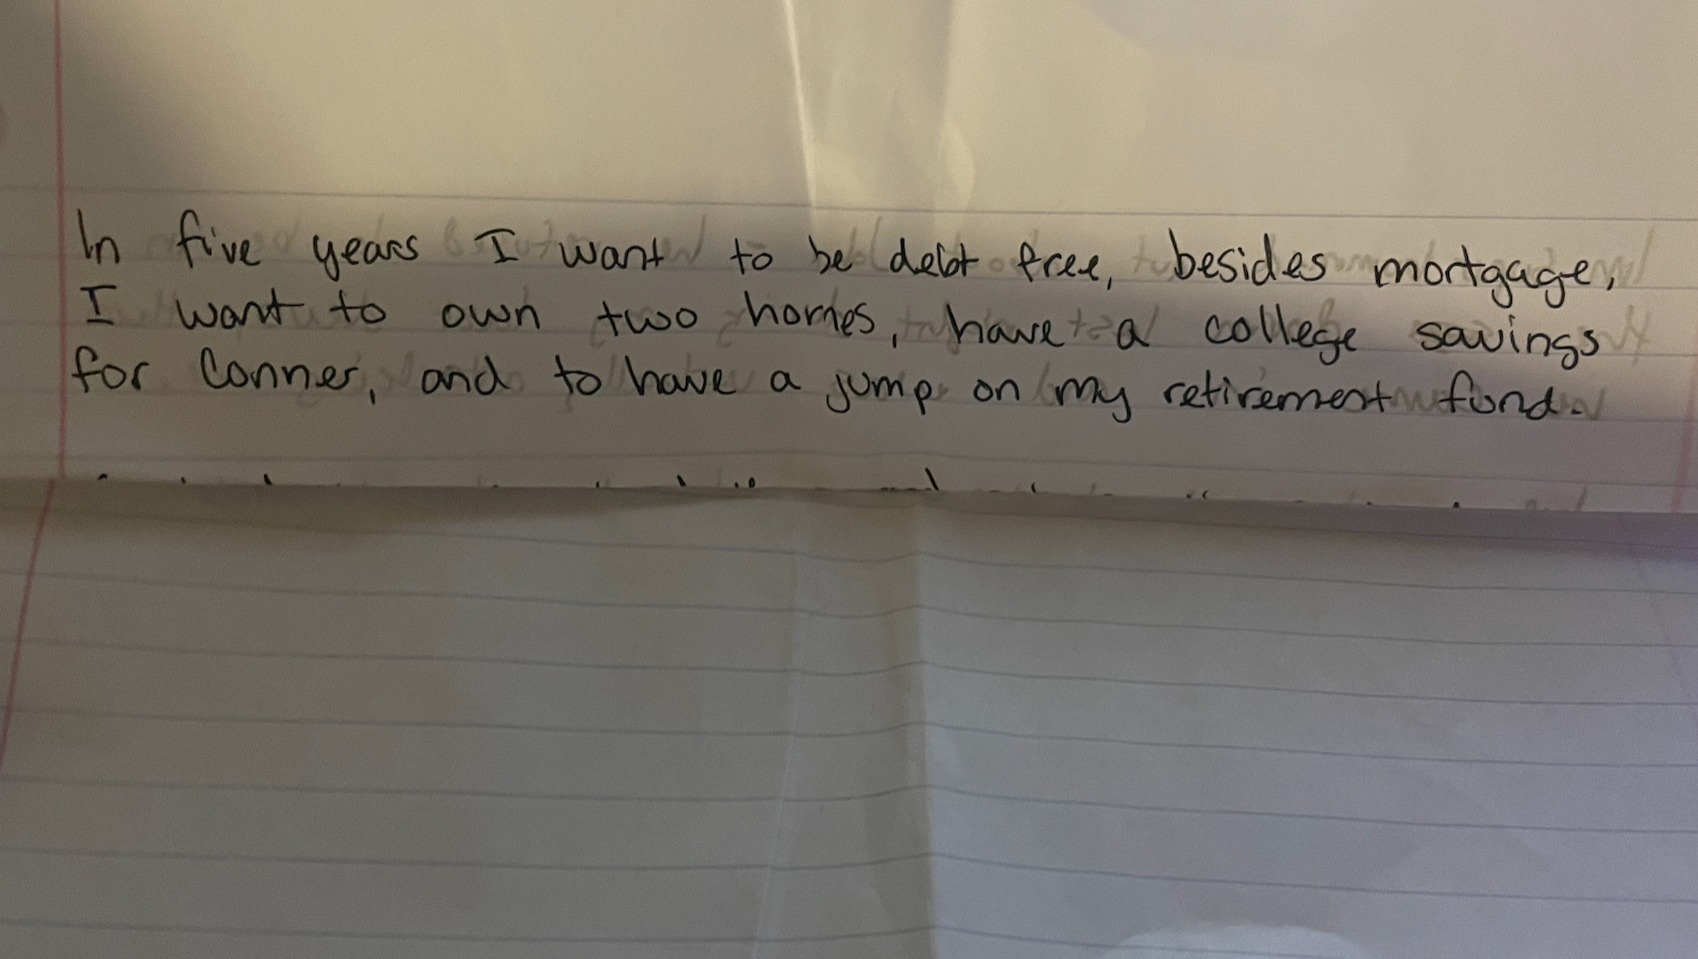 In five years I want to be debt free, besides mortgage,
I want to own two homes, have a college savings
for Conner, and to have a jump on my retirement fund.